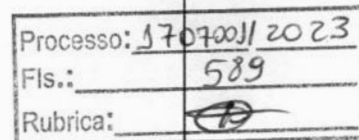 Processo: 1707001/2023
Fls.: 589
Rubrica: